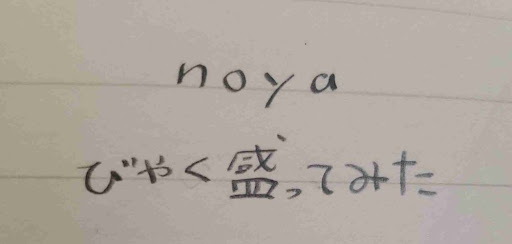 noya
びやく盛ってみた